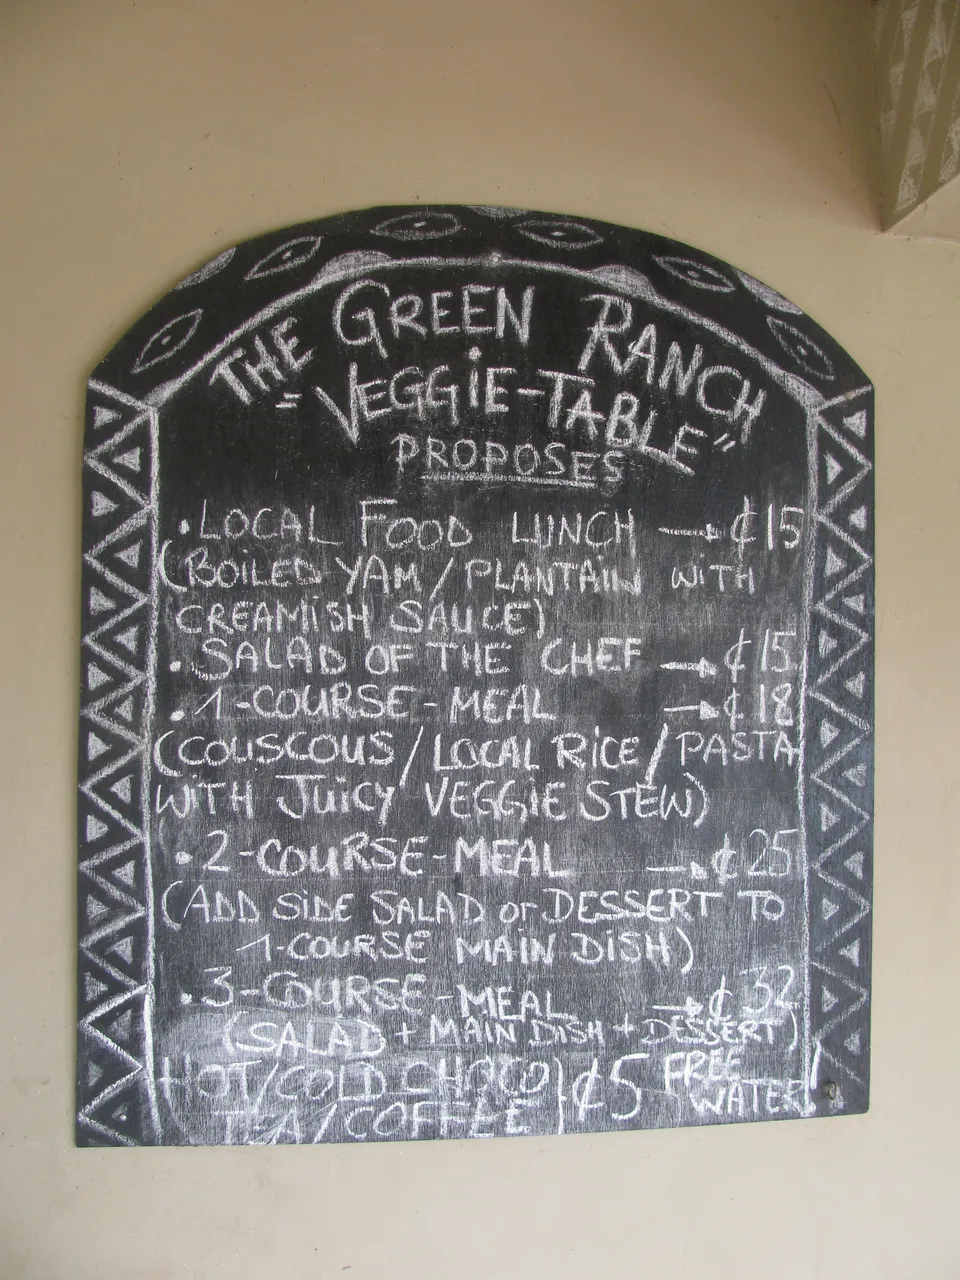 THE GREEN RANCH
"VEGGIE-TABLE"
PROPOSES
• LOCAL FOOD LUNCH → ₵15
(BOILED YAM / PLANTAIN WITH
CREAMISH SAUCE)
• SALAD OF THE CHEF → ₵15
• 1-COURSE-MEAL → ₵18
(COUSCOUS / LOCAL RICE / PASTA
WITH JUICY VEGGIE STEW)
• 2-COURSE-MEAL → ₵25
(ADD SIDE SALAD or DESSERT TO
1-COURSE MAIN DISH)
• 3-COURSE-MEAL → ₵32
(SALAD + MAIN DISH + DESSERT)
HOT/COLD CHOCO } ₵5 FREE
TEA/COFFEE WATER